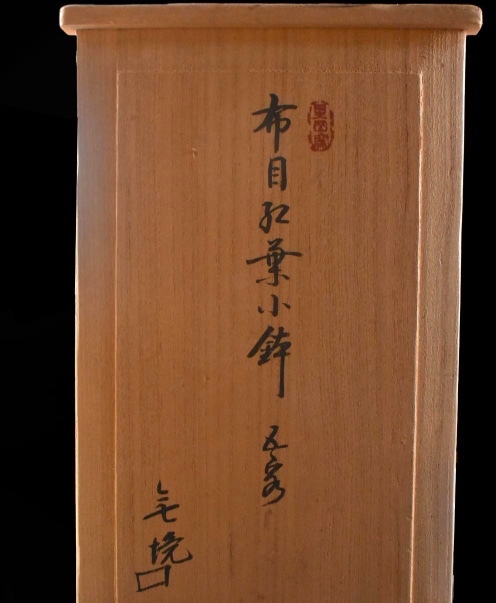 布目紅葉小鉢 五客